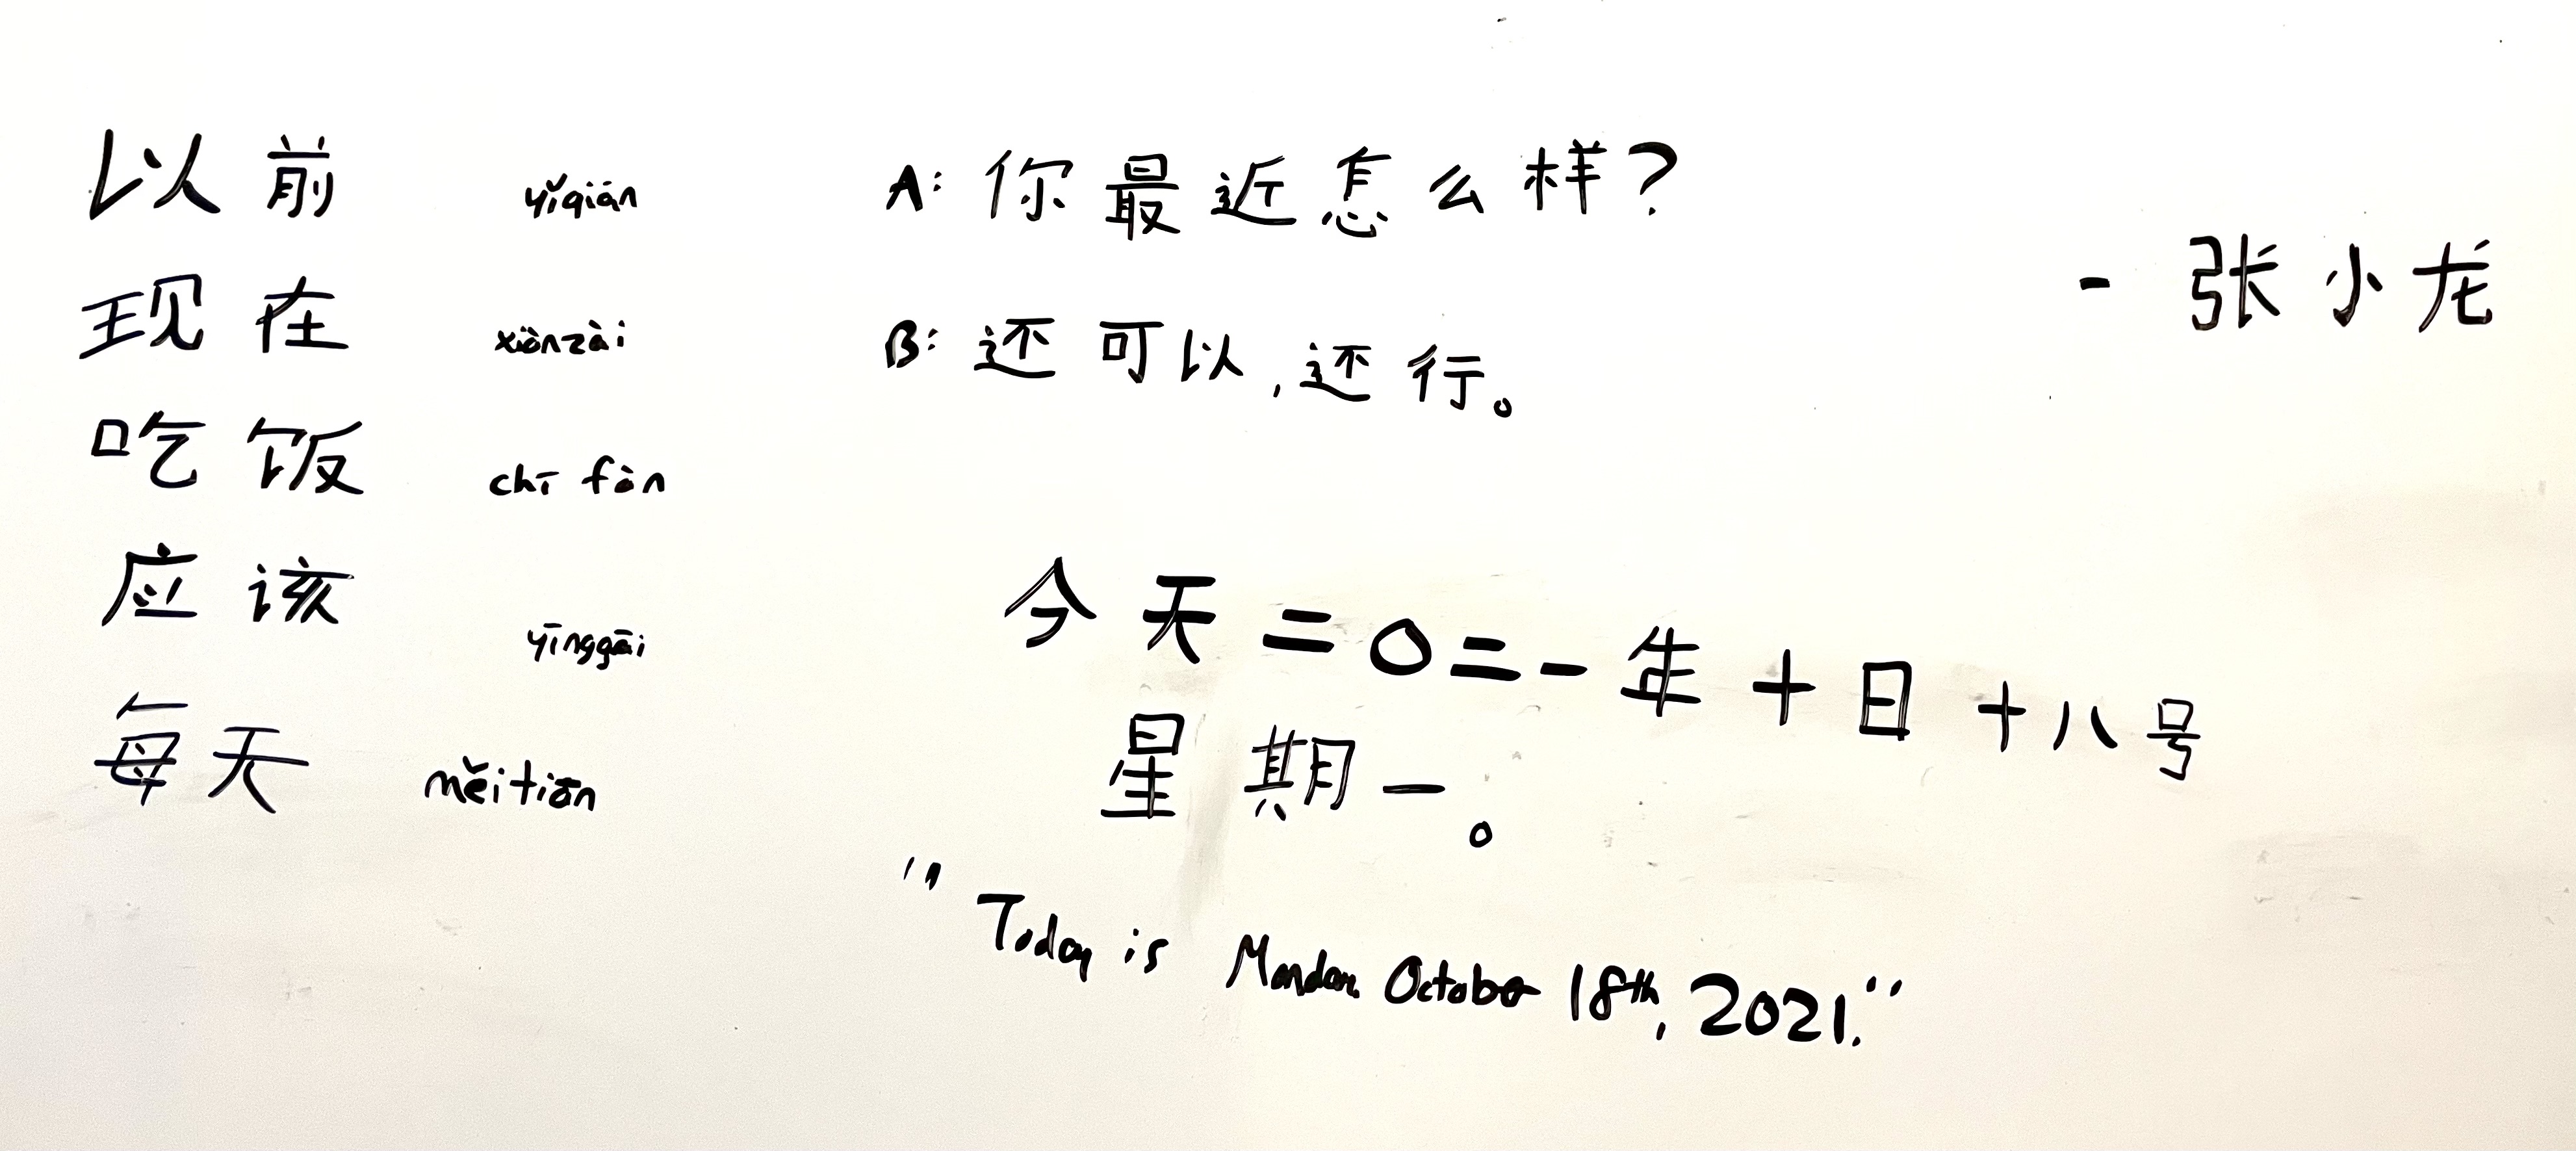 以前 yǐqián
现在 xiànzài
吃饭 chī fàn
应该 yīnggāi
每天 měitiān
A: 你最近怎么样?
B: 还可以, 还行。
- 张小龙
今天二〇二一年十日十八号
星期一。
"Today is Monday October 18th, 2021."